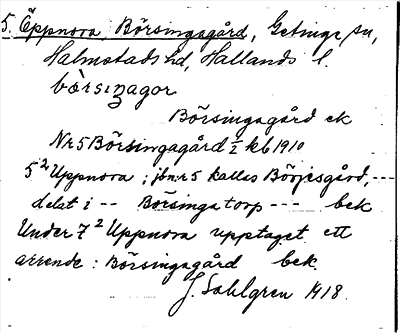 5. Öppnora, Börsingagård, Getinge sn,
Halmstads hd, Hallands l.
bòrsiŋagoṛ
Börsingagård ek
Nr 5 Börsingagård 1/2 kb 1910
5² Uppnora; jbnr 5 kallas Börjesgård, ---
delat i -- Börsingatorp --- bek
Under 7² Uppnora upptaget ett
arrende: Börsingagård bek.
J. Sahlgren 1918.